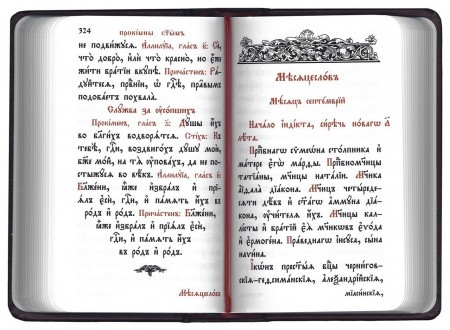 324
прокімны ст҃ымъ
не подвижуся. Аллилуіа, гласъ и҃: Се,
что добро, или что красно, но еже
жити братіи вкупѣ. Причастинъ: Ра-
дуйтеся, прв҃ніи, ѡ гдⷭ҇ѣ, правымъ
подобаетъ похвала.
Служба за оусопшихъ
Прокіминъ, гласъ: Душы ихъ
во благихъ водворятся. Стіхъ: Къ
тебѣ, гдⷭ҇и, воздвигохъ душу мою,
бж҃е мой, на тѧ уповахъ, да не по-
стыжуся во вѣкъ. Аллилуіа, гласъ
Блажени, ꙗже избралъ и прі-
ѧлъ еси, гдⷭ҇и, и память ихъ въ
родъ и родъ. Причастинъ: Блажени,
ꙗже избралъ и пріѧлъ еси,
гдⷭ҇и, и память ихъ
въ родъ и родъ.
Мѣсѧцесловъ
Мѣсѧцесловъ
Мѣсѧцъ септумврій
Начало індікта, сирѣчь новагѡ
лѣта.
Прп҃бнагѡ сѵмеѡна столпника и
матере егѡ марды. Прп҃бномч҃ницы
татіаны, мч҃ницы наталіи. Мч҃ника
аідала діакона. Мч҃ницъ четыреде-
сѧти дѣвъ и ст҃агѡ аммуна діа-
кона, оучителѧ ихъ. Мч҃ницы кал-
лісты и братій еѧ мч҃никѡвъ еѵода
и ермогена. Праведнагѡ іисуса, сына
наѵина.
Ікѡнъ прест҃ыѧ бцⷣы чернігов-
скіѧ-геѳсиманскіѧ, алеѯандрійскіѧ,
міасинскіѧ,